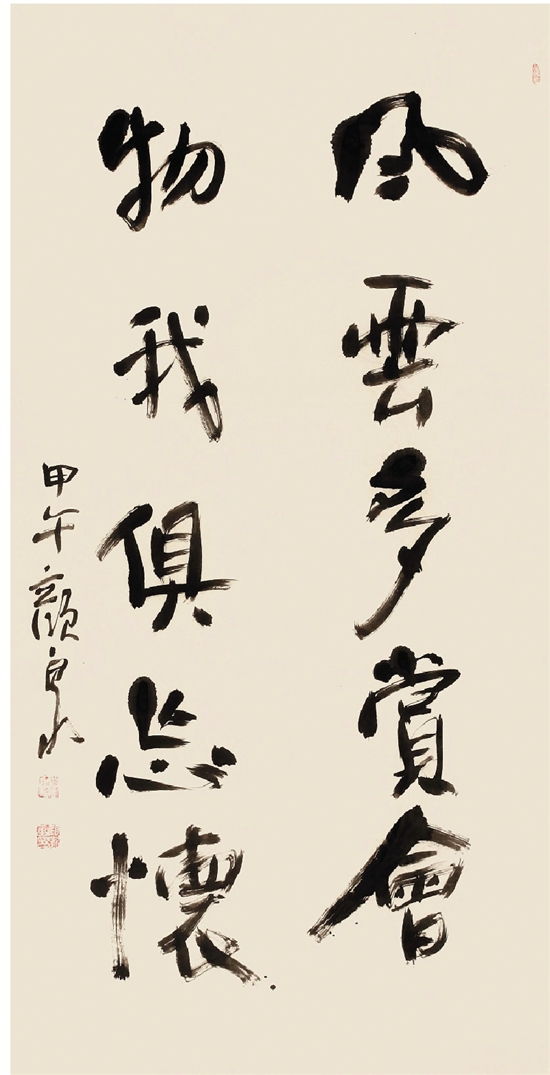 風雲多賞會
物我俱忘懷
甲午顏良水